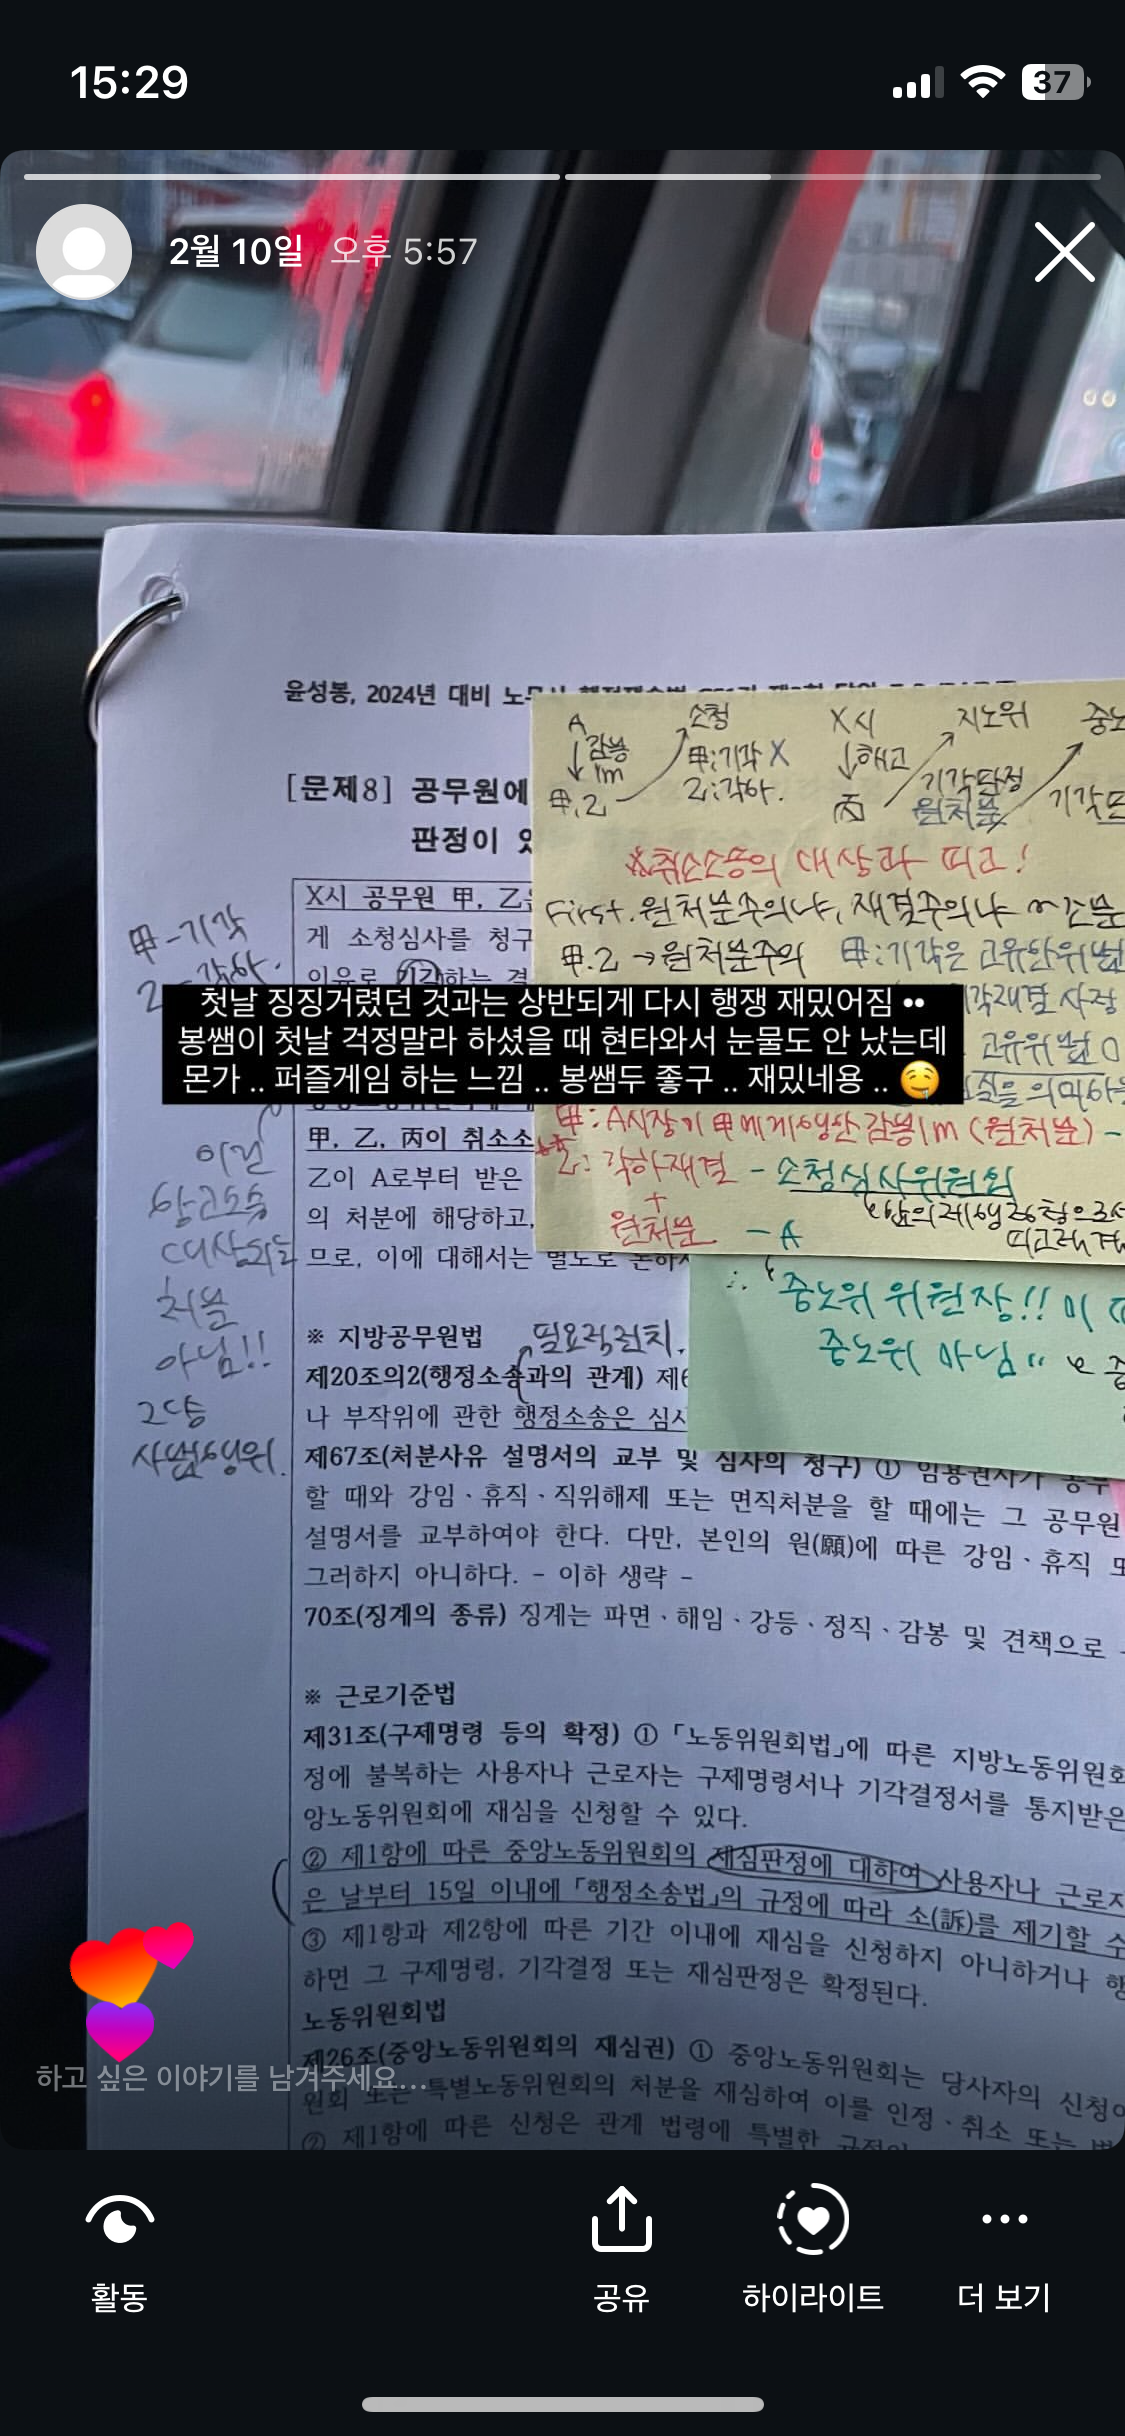 15:29
37
2월 10일 오후 5:57
윤성봉, 2024년 대비
[문제8] 공무원에
판정이
X시 공무원 甲, 乙은
게 소청심사를 청구
이유로 기각하는 결
甲-기각
乙-각하.
A 소청 X시 지노위 중노
감봉 1m 甲:기각 X 해고 기각판정
甲.乙 乙:각하. 丙 원처분 기각
※취소소송의 대상과 피고!
First. 원처분주의냐, 재결주의냐
甲.乙 → 원처분주의 甲:기각은 고유한위법
각재결 사정
고유위법 O
첫날 징징거렸던 것과는 상반되게 다시 행쟁 재밌어짐 ••
봉쌤이 첫날 걱정말라 하셨을 때 현타와서 눈물도 안 났는데
몬가 .. 퍼즐게임 하는 느낌 .. 봉쌤두 좋구 .. 재밌네용 .. 🤤
甲: A시장이 甲에게 행한 감봉1m (원처분) -
乙: 각하재결 - 소청심사위원회
+
원처분 - A
∴ 중노위 위원장!! 이
중노위 아님
甲, 乙, 丙이 취소소
乙이 A로부터 받은
의 처분에 해당하고,
므로, 이에 대해서는 별도로 논하
이건
항고소송
대상되는
처분
아님!!
그냥
사법행위.
※ 지방공무원법
필요적전치.
제20조의2(행정소송과의 관계) 제6
나 부작위에 관한 행정소송은 심사
제67조(처분사유 설명서의 교부 및 심사의 청구) ① 임용권자가 공무
할 때와 강임ㆍ휴직ㆍ직위해제 또는 면직처분을 할 때에는 그 공무원
설명서를 교부하여야 한다. 다만, 본인의 원(願)에 따른 강임ㆍ휴직 또
그러하지 아니하다. - 이하 생략 -
70조(징계의 종류) 징계는 파면ㆍ해임ㆍ강등ㆍ정직ㆍ감봉 및 견책으로
※ 근로기준법
제31조(구제명령 등의 확정) ① 「노동위원회법」에 따른 지방노동위원회
정에 불복하는 사용자나 근로자는 구제명령서나 기각결정서를 통지받은
앙노동위원회에 재심을 신청할 수 있다.
② 제1항에 따른 중앙노동위원회의 재심판정에 대하여 사용자나 근로자
은 날부터 15일 이내에 「행정소송법」의 규정에 따라 소(訴)를 제기할 수
③ 제1항과 제2항에 따른 기간 이내에 재심을 신청하지 아니하거나 행
하면 그 구제명령, 기각결정 또는 재심판정은 확정된다.
노동위원회법
제26조(중앙노동위원회의 재심권) ① 중앙노동위원회는 당사자의 신청이
원회 또는 특별노동위원회의 처분을 재심하여 이를 인정ㆍ취소 또는 변
② 제1항에 따른 신청은 관계 법령에 특별한 규정이
하고 싶은 이야기를 남겨주세요...
활동
공유
하이라이트
더 보기